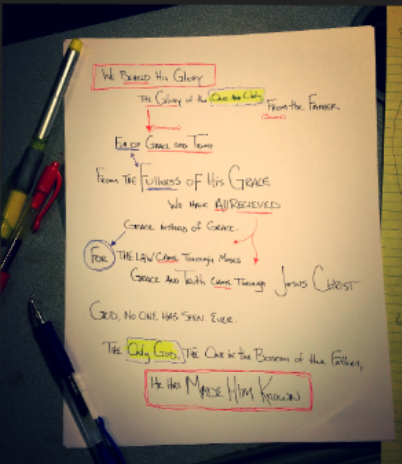 We Behold His Glory
The Glory of the One and Only From the Father.
(Source)
Full of Grace and Truth
From the Fullness of His Grace
We have All Recieved
Grace instead of Grace.
For The Law Came Through Moses
Grace and Truth Came Through Jesus Christ
God, No One Has Seen. Ever.
The Only God, The One in the Bosom of the Father,
He Has Made Him Known